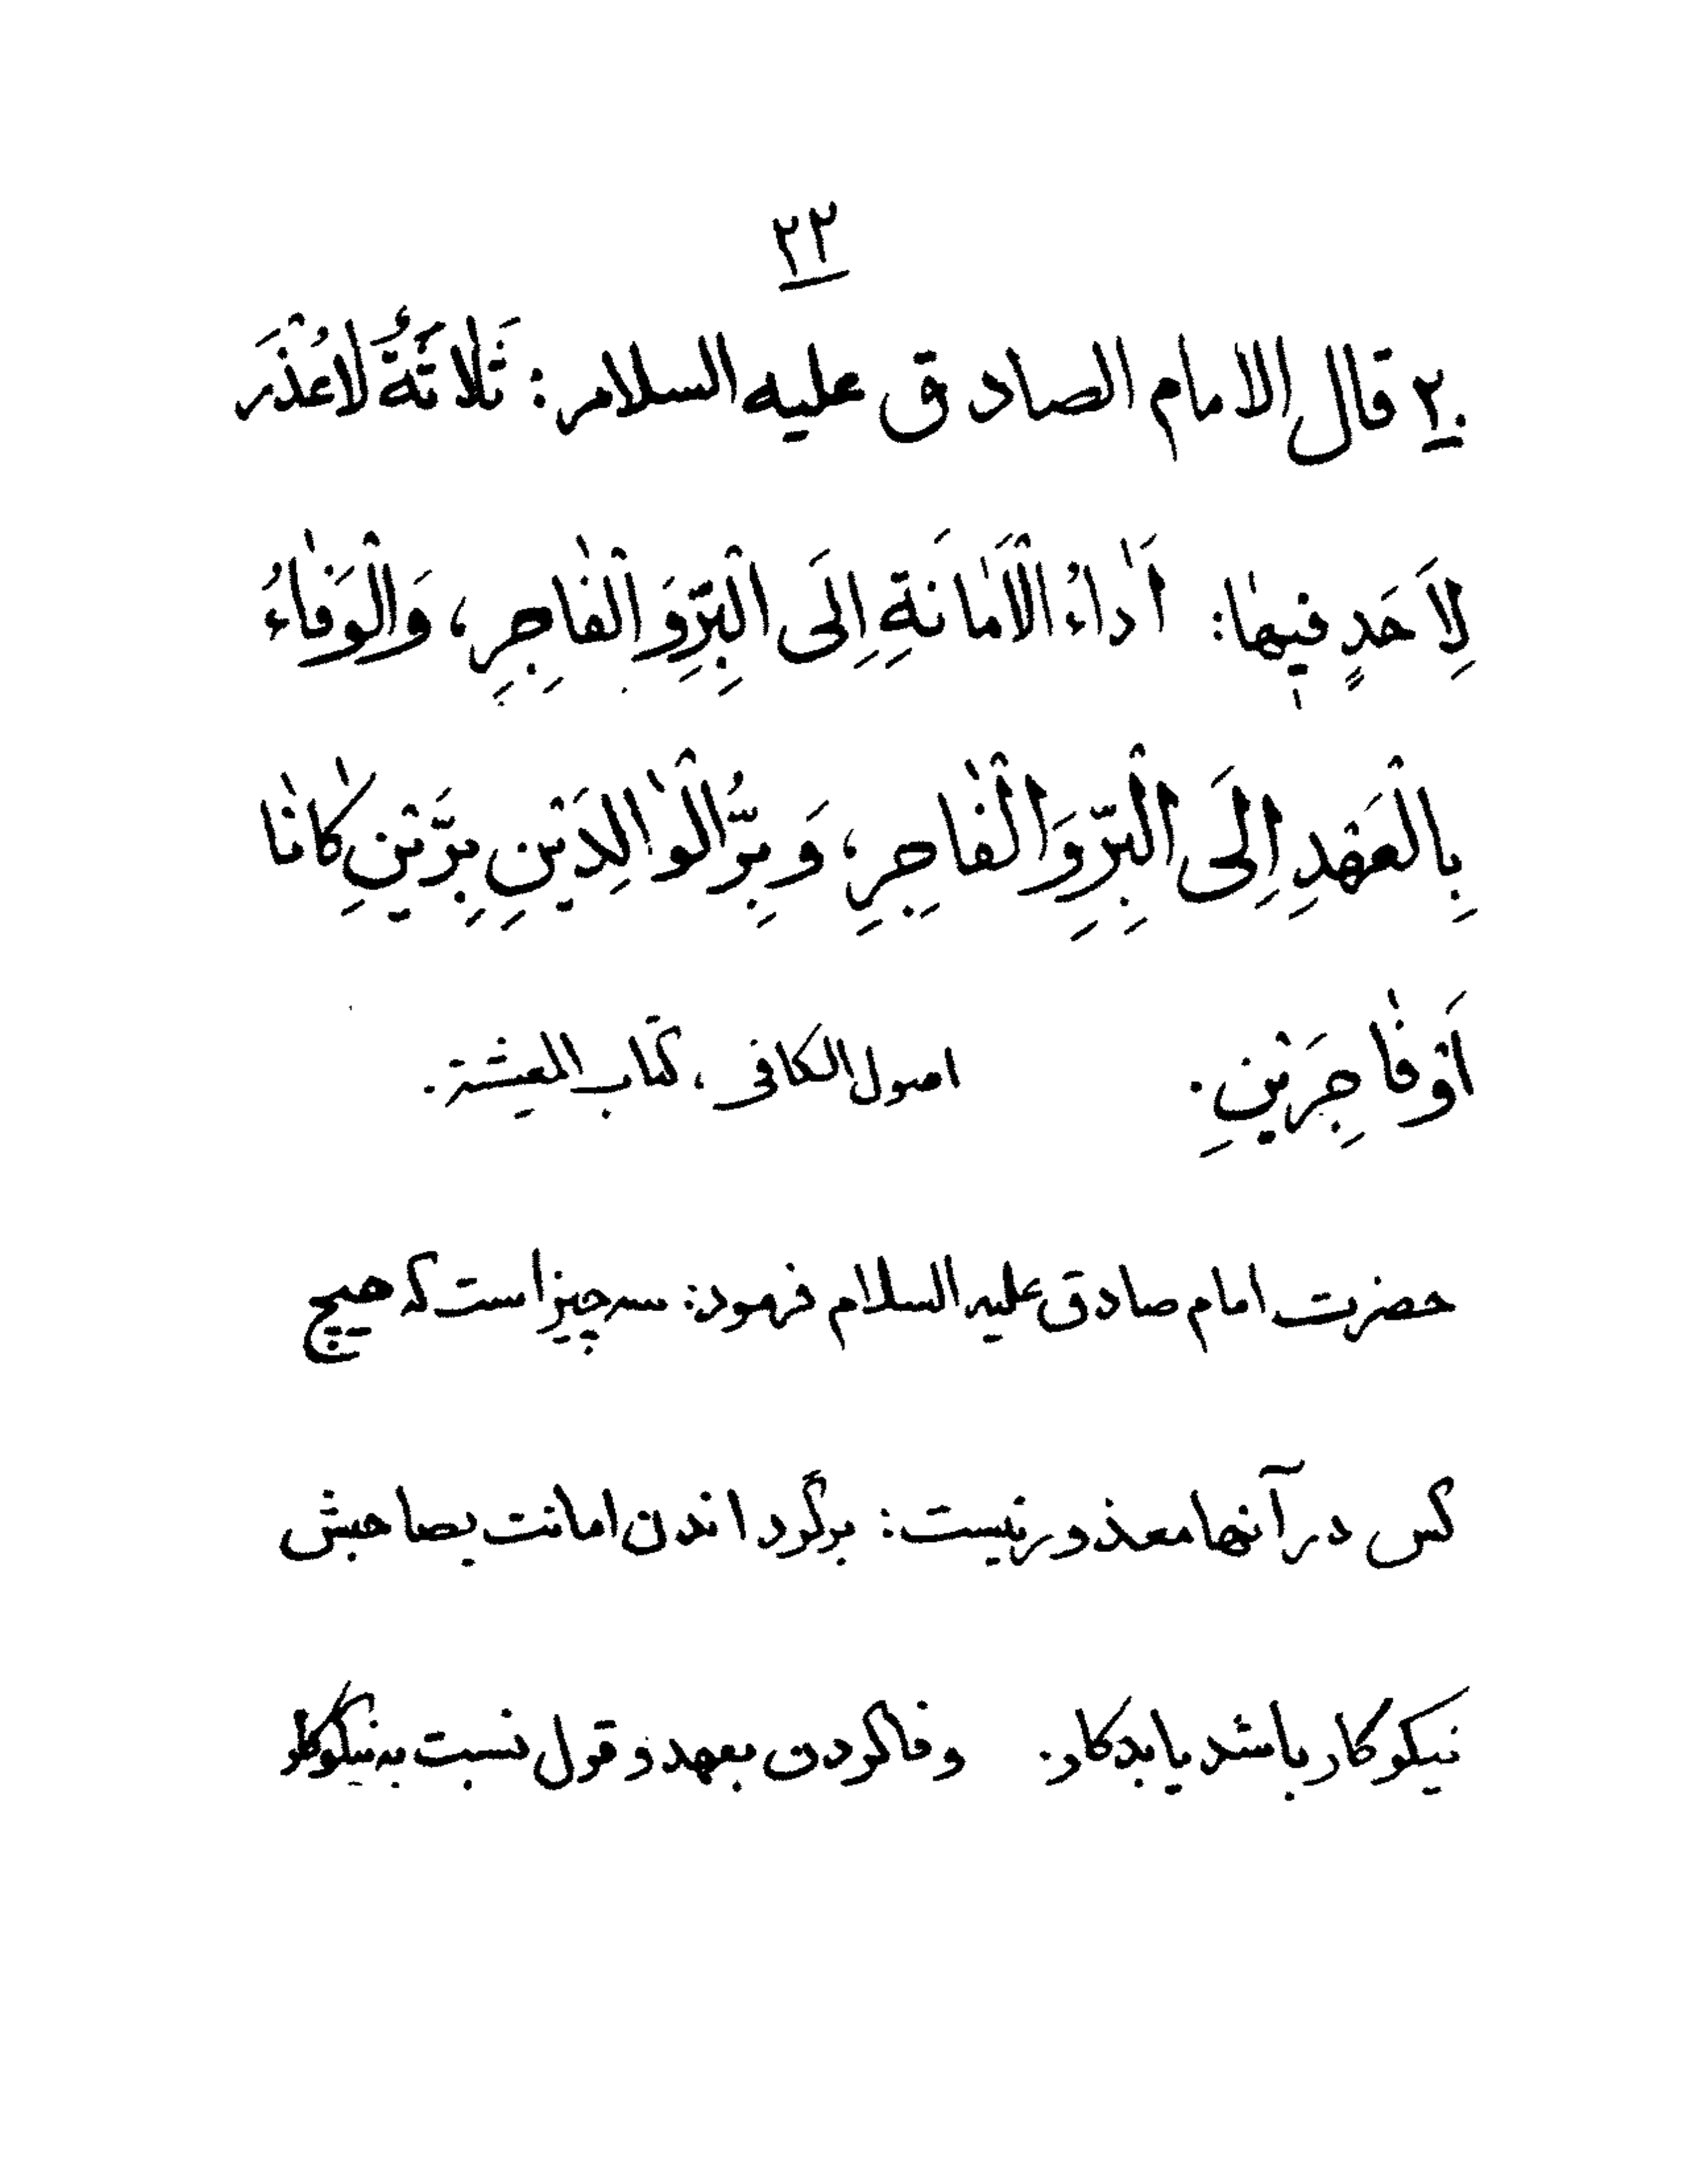 ٢٢
٢٠ قال الامام الصادق عليه السلام: ثَلاٰثَةٌ لاٰعُذْرَ
لِأَحَدٍ فيهٰا: اَدٰاءُ الْأَمٰانَةِ اِلَى الْبَرِّ وَ الْفٰاجِرِ، وَ الْوَفٰاءُ
بِالْعَهْدِ اِلَى الْبَرِّ وَ الْفٰاجِرِ، وَ بِرُّ الْوٰالِدَيْنِ بَرَّيْنِ كٰانٰا
اَوْ فٰاجِرَيْنِ. اصول الكافى، كتاب المعيشة.
حضرت امام صادق عليه السلام فرمود: سه چيز است كه هيچ
كس در آنها معذور نيست: برگرداندن امانت بصاحبش
نيكوكار باشد يا بدكار. وفا كردن بعهد و قول نسبت به نيكوكار